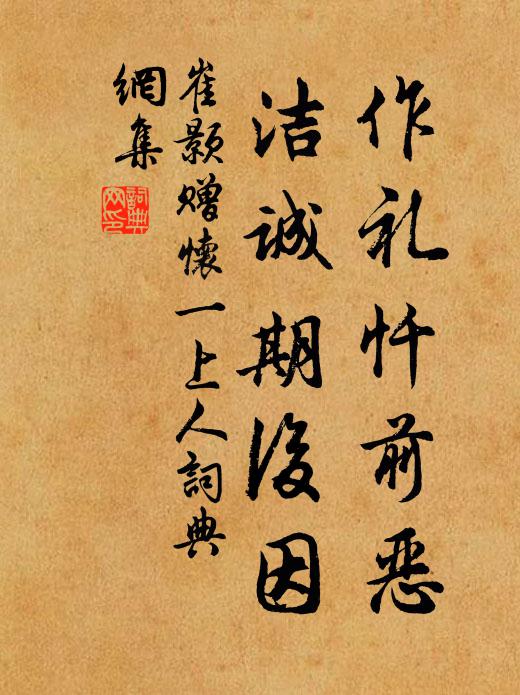 作礼忏前恶
洁诚期後因
崔颢赠懷一上人詞典
網集
詞典
网印